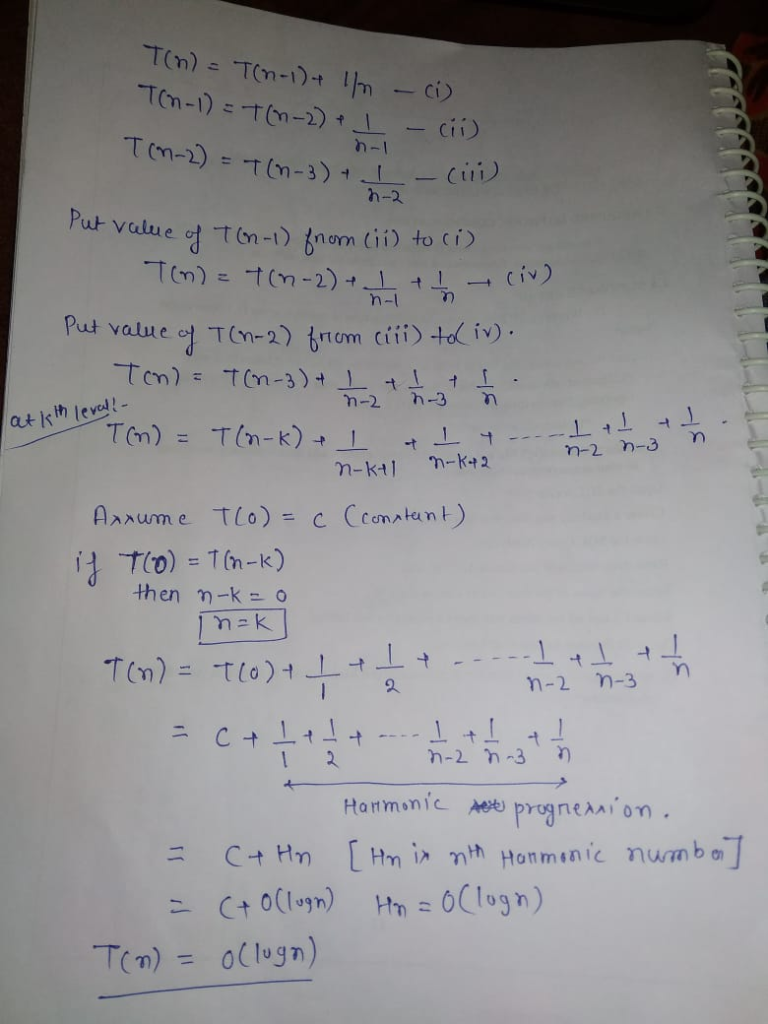 T(n) = T(n-1) + 1/n - (i)
T(n-1) = T(n-2) + 1/(n-1) - (ii)
T(n-2) = T(n-3) + 1/(n-2) - (iii)
Put value of T(n-1) from (ii) to (i)
T(n) = T(n-2) + 1/(n-1) + 1/n → (iv)
Put value of T(n-2) from (iii) to (iv).
T(n) = T(n-3) + 1/(n-2) + 1/(n-3) + 1/n .
at kth level:-
T(n) = T(n-k) + 1/(n-k+1) + 1/(n-k+2) + ------ 1/(n-2) + 1/(n-3) + 1/n .
Assume T(0) = c (constant)
if T(0) = T(n-k)
then n-k = 0
n=k
T(n) = T(0) + 1/1 + 1/2 + ------ 1/(n-2) + 1/(n-3) + 1/n
= C + 1/1 + 1/2 + ---- 1/(n-2) + 1/(n-3) + 1/n
Harmonic progression.
= C + Hn [Hn is nth Harmonic number]
= C + O(logn) Hn = O(logn)
T(n) = O(logn)